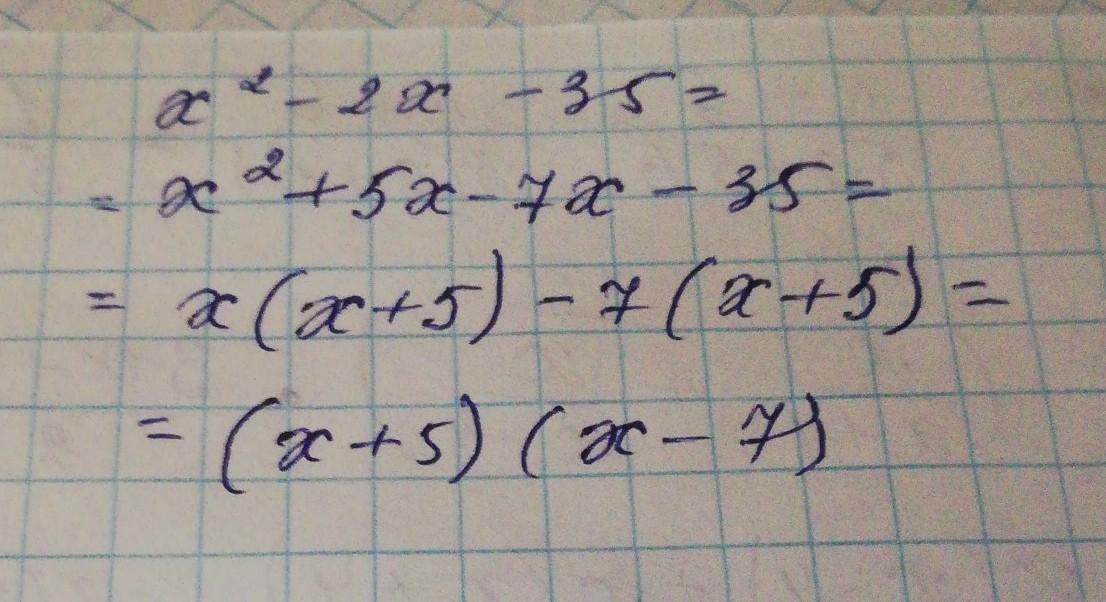 x² - 2x - 35 =
= x² + 5x - 7x - 35 =
= x(x+5) - 7(x+5) =
= (x+5)(x-7)